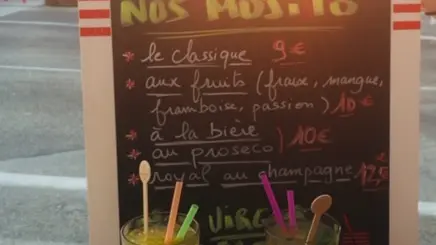 NOS MOJITO
* le classique 9€
* aux fruits (fraise, mangue,
framboise, passion) 10€
* à la bière
* au proseco) 10€
* royal au champagne 12,5€
VIRG